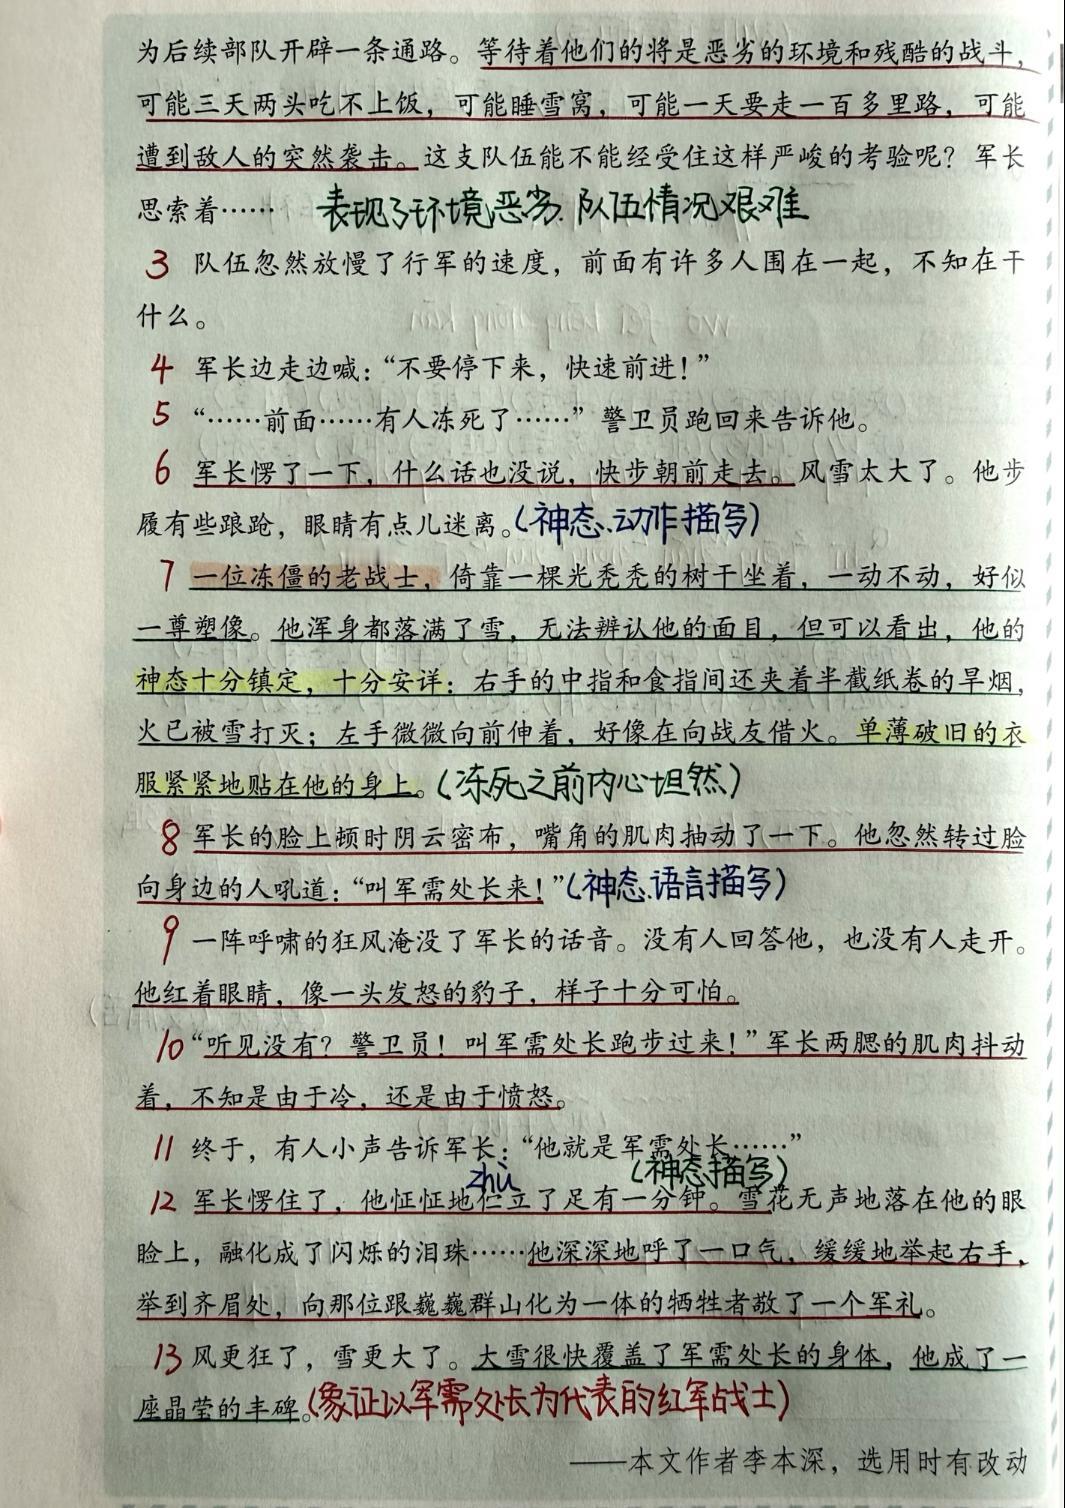 为后续部队开辟一条通路。等待着他们的将是恶劣的环境和残酷的战斗，
可能三天两头吃不上饭，可能睡雪窝，可能一天要走一百多里路，可能
遭到敌人的突然袭击。这支队伍能不能经受住这样严峻的考验呢？军长
思索着…… 表现了环境恶劣.队伍情况艰难
3 队伍忽然放慢了行军的速度，前面有许多人围在一起，不知在干
什么。
4 军长边走边喊：“不要停下来，快速前进！”
5 “……前面……有人冻死了……”警卫员跑回来告诉他。
6 军长愣了一下，什么话也没说，快步朝前走去。风雪太大了。他步
履有些踉跄，眼睛有点儿迷离。（神态.动作描写）
7 一位冻僵的老战士，倚靠一棵光秃秃的树干坐着，一动不动，好似
一尊塑像。他浑身都落满了雪，无法辨认他的面目，但可以看出，他的
神态十分镇定，十分安详：右手的中指和食指间还夹着半截纸卷的旱烟，
火已被雪打灭；左手微微向前伸着，好像在向战友借火。单薄破旧的衣
服紧紧地贴在他的身上。（冻死之前内心坦然）
8 军长的脸上顿时阴云密布，嘴角的肌肉抽动了一下。他忽然转过脸
向身边的人吼道：“叫军需处长来！”（神态.语言描写）
9 一阵呼啸的狂风淹没了军长的话音。没有人回答他，也没有人走开。
他红着眼睛，像一头发怒的豹子，样子十分可怕。
10 “听见没有？警卫员！叫军需处长跑步过来！”军长两腮的肌肉抖动
着，不知是由于冷，还是由于愤怒。
11 终于，有人小声告诉军长：“他就是军需处长……”
zhù （神态描写）
12 军长愣住了，他怔怔地伫立了足有一分钟。雪花无声地落在他的眼
睑上，融化成了闪烁的泪珠……他深深地呼了一口气，缓缓地举起右手，
举到齐眉处，向那位跟巍巍群山化为一体的牺牲者敬了一个军礼。
13 风更狂了，雪更大了。大雪很快覆盖了军需处长的身体，他成了一
座晶莹的丰碑。（象征以军需处长为代表的红军战士）
——本文作者李本深，选用时有改动